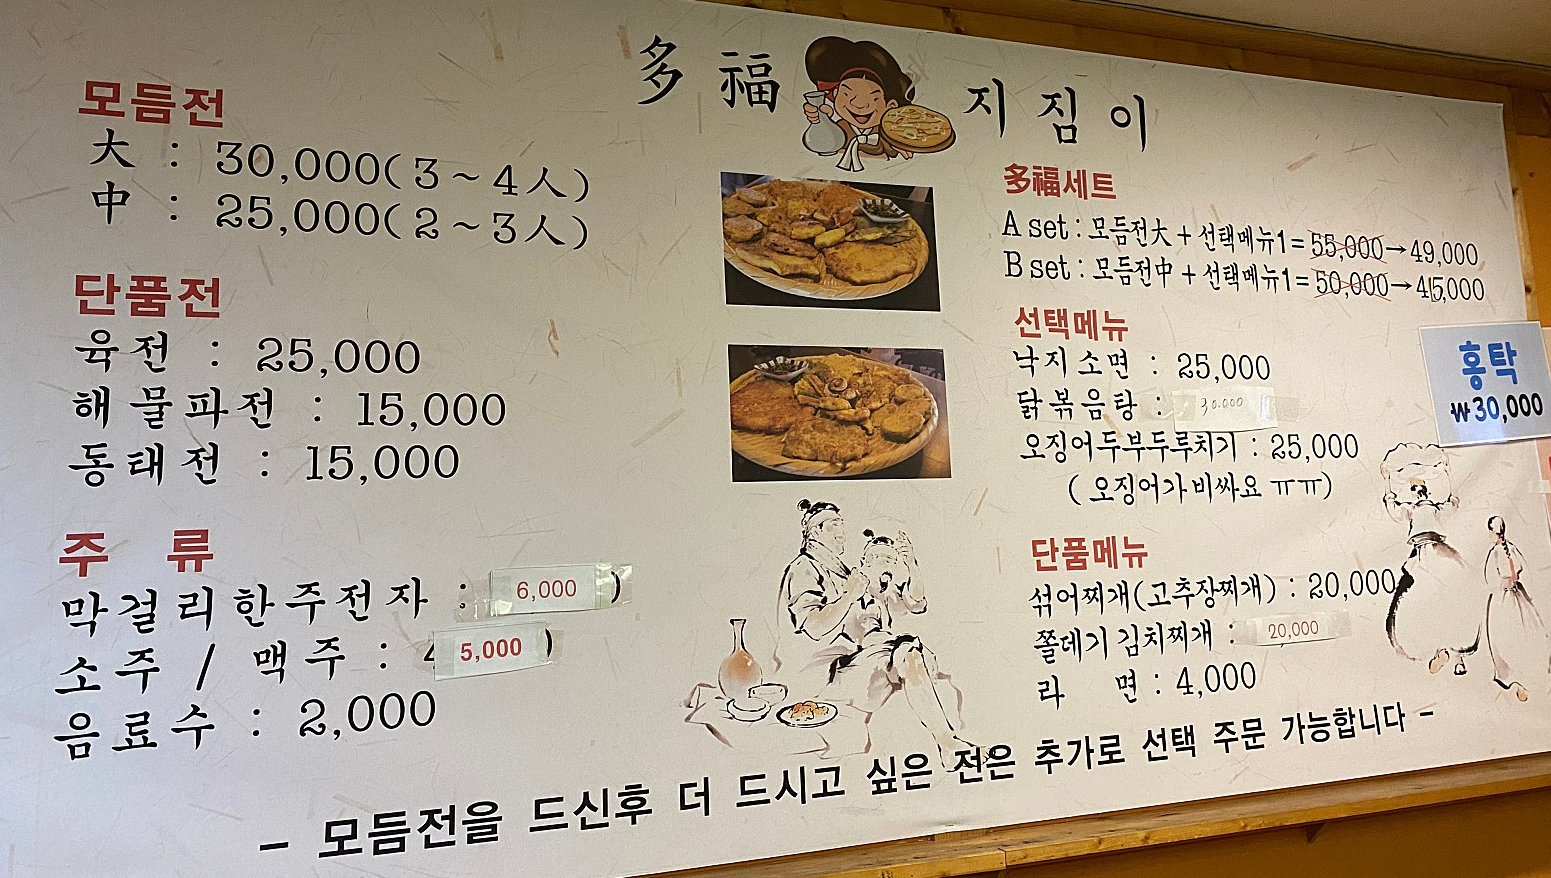 多福 지짐이
모듬전
大 : 30,000(3~4人)
中 : 25,000(2~3人)
단품전
육전 : 25,000
해물파전 : 15,000
동태전 : 15,000
주 류
막걸리한주전자 : 6,000)
소주 / 맥주 : 4 5,000 )
음료수 : 2,000
多福세트
A set : 모듬전大 + 선택메뉴1 = 55,000→49,000
B set : 모듬전中 + 선택메뉴1 = 50,000→45,000
선택메뉴
낙지소면 : 25,000
닭볶음탕 : 30.000
오징어두부두루치기 : 25,000
( 오징어가비싸요 ㅠㅠ)
단품메뉴
섞어찌개(고추장찌개) : 20,000
쫄데기 김치찌개 : 20,000
라 면 : 4,000
홍탁
₩30,000
- 모듬전을 드신후 더 드시고 싶은 전은 추가로 선택 주문 가능합니다 -